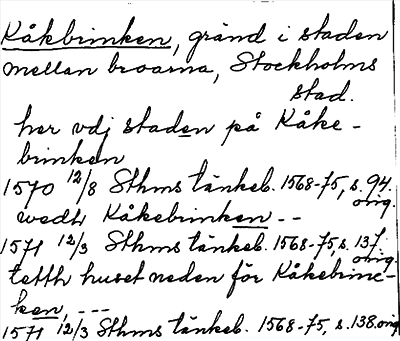 Kåkbrinken, gränd i staden
mellan broarna, Stockholms
stad.
her vdj staden på Kåke-
brinken
1570 12/8 Sthms tänkeb. 1568-75, s. 94.
orig.
wedh Kåkebrinken --
1571 12/3 Sthms tänkeb. 1568-75, s. 137.
orig.
tetth huset neden för Kåkebrinc-
ken, ---
1571 12/3 Sthms tänkeb. 1568-75, s. 138. orig.